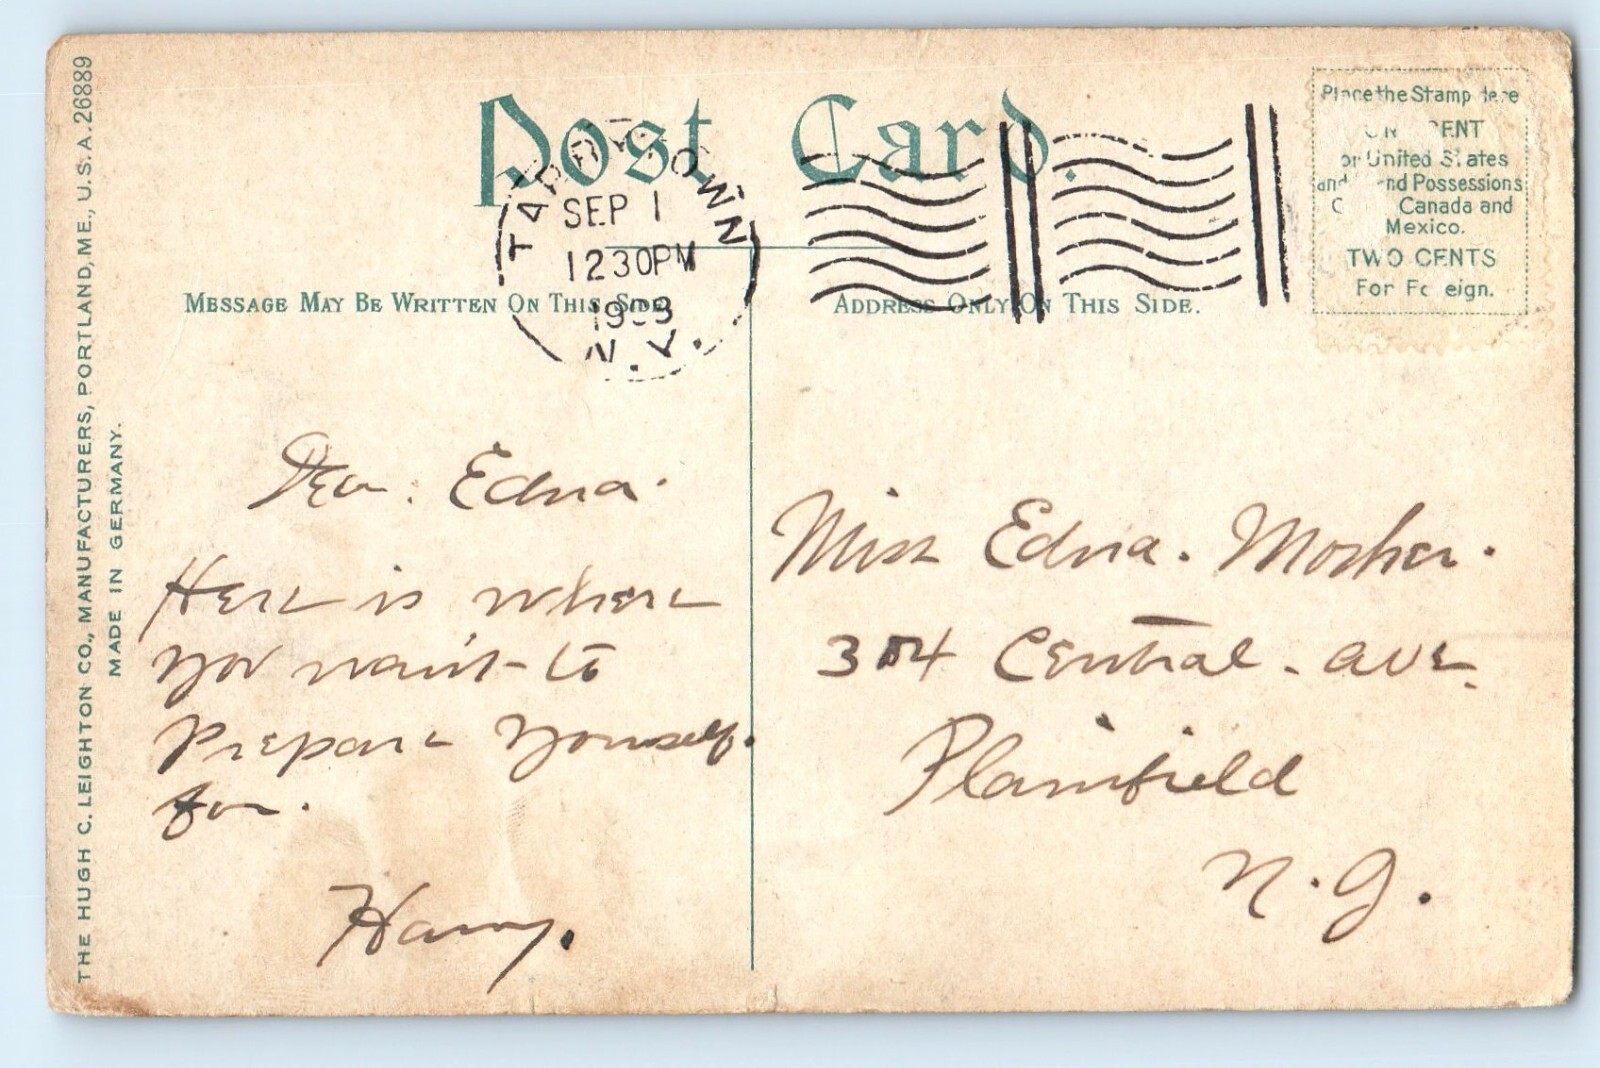 Post Card.
THE HUGH C. LEIGHTON CO., MANUFACTURERS, PORTLAND, ME., U.S.A. 26889
MADE IN GERMANY.
TARRYTOWN
SEP 1
1230PM
N.Y.
MESSAGE MAY BE WRITTEN ON THIS SIDE
ADDRESS ONLY ON THIS SIDE.
Place the Stamp Here
ONE CENT
for United States
and Possessions
Canada and
Mexico.
TWO CENTS
For Foreign.
Dear. Edna.
Here is where
you want to
prepare yourself.
for.
Harry.
Miss Edna. Mosher.
304 Central. ave.
Plainfield
N. J.